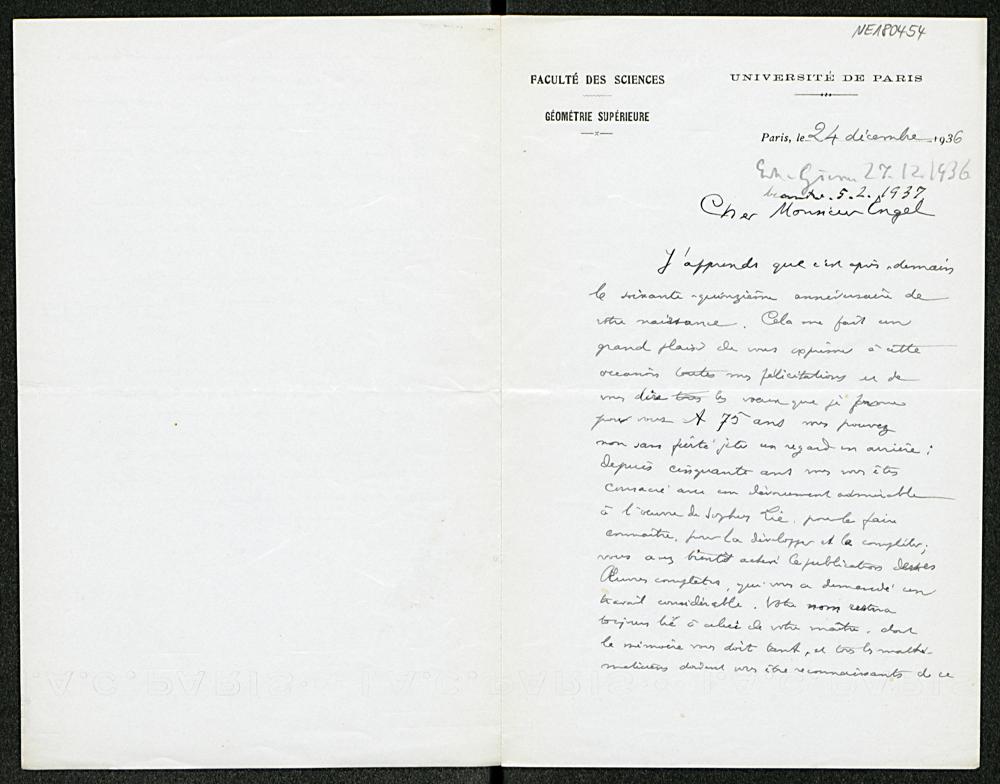 NE180454
FACULTÉ DES SCIENCES
GÉOMÉTRIE SUPÉRIEURE
UNIVERSITÉ DE PARIS
Paris, le 24 décembre 1936
27.12.1936
5.2.1937
Cher Monsieur Engel
J'apprends que c'est après-demain
le soixante-quinzième anniversaire de
votre naissance. Cela me fait un
grand plaisir de vous exprimer à cette
occasion toutes mes félicitations et de
vous dire tous les voeux que je forme
pour vous. A 75 ans vous pouvez
non sans fierté jeter un regard en arrière ;
depuis cinquante ans vous vous êtes
consacré avec un dévouement admirable
à l'oeuvre de Sophus Lie, pour la faire
connaître, pour la développer et la compléter ;
vous avez bientôt achevé la publication de ses
Œuvres complètes, qui vous a demandé un
travail considérable. Votre nom restera
toujours lié à celui de votre maître, dont
la mémoire vous doit tant, et tous les mathé-
maticiens doivent vous être reconnaissants de ce